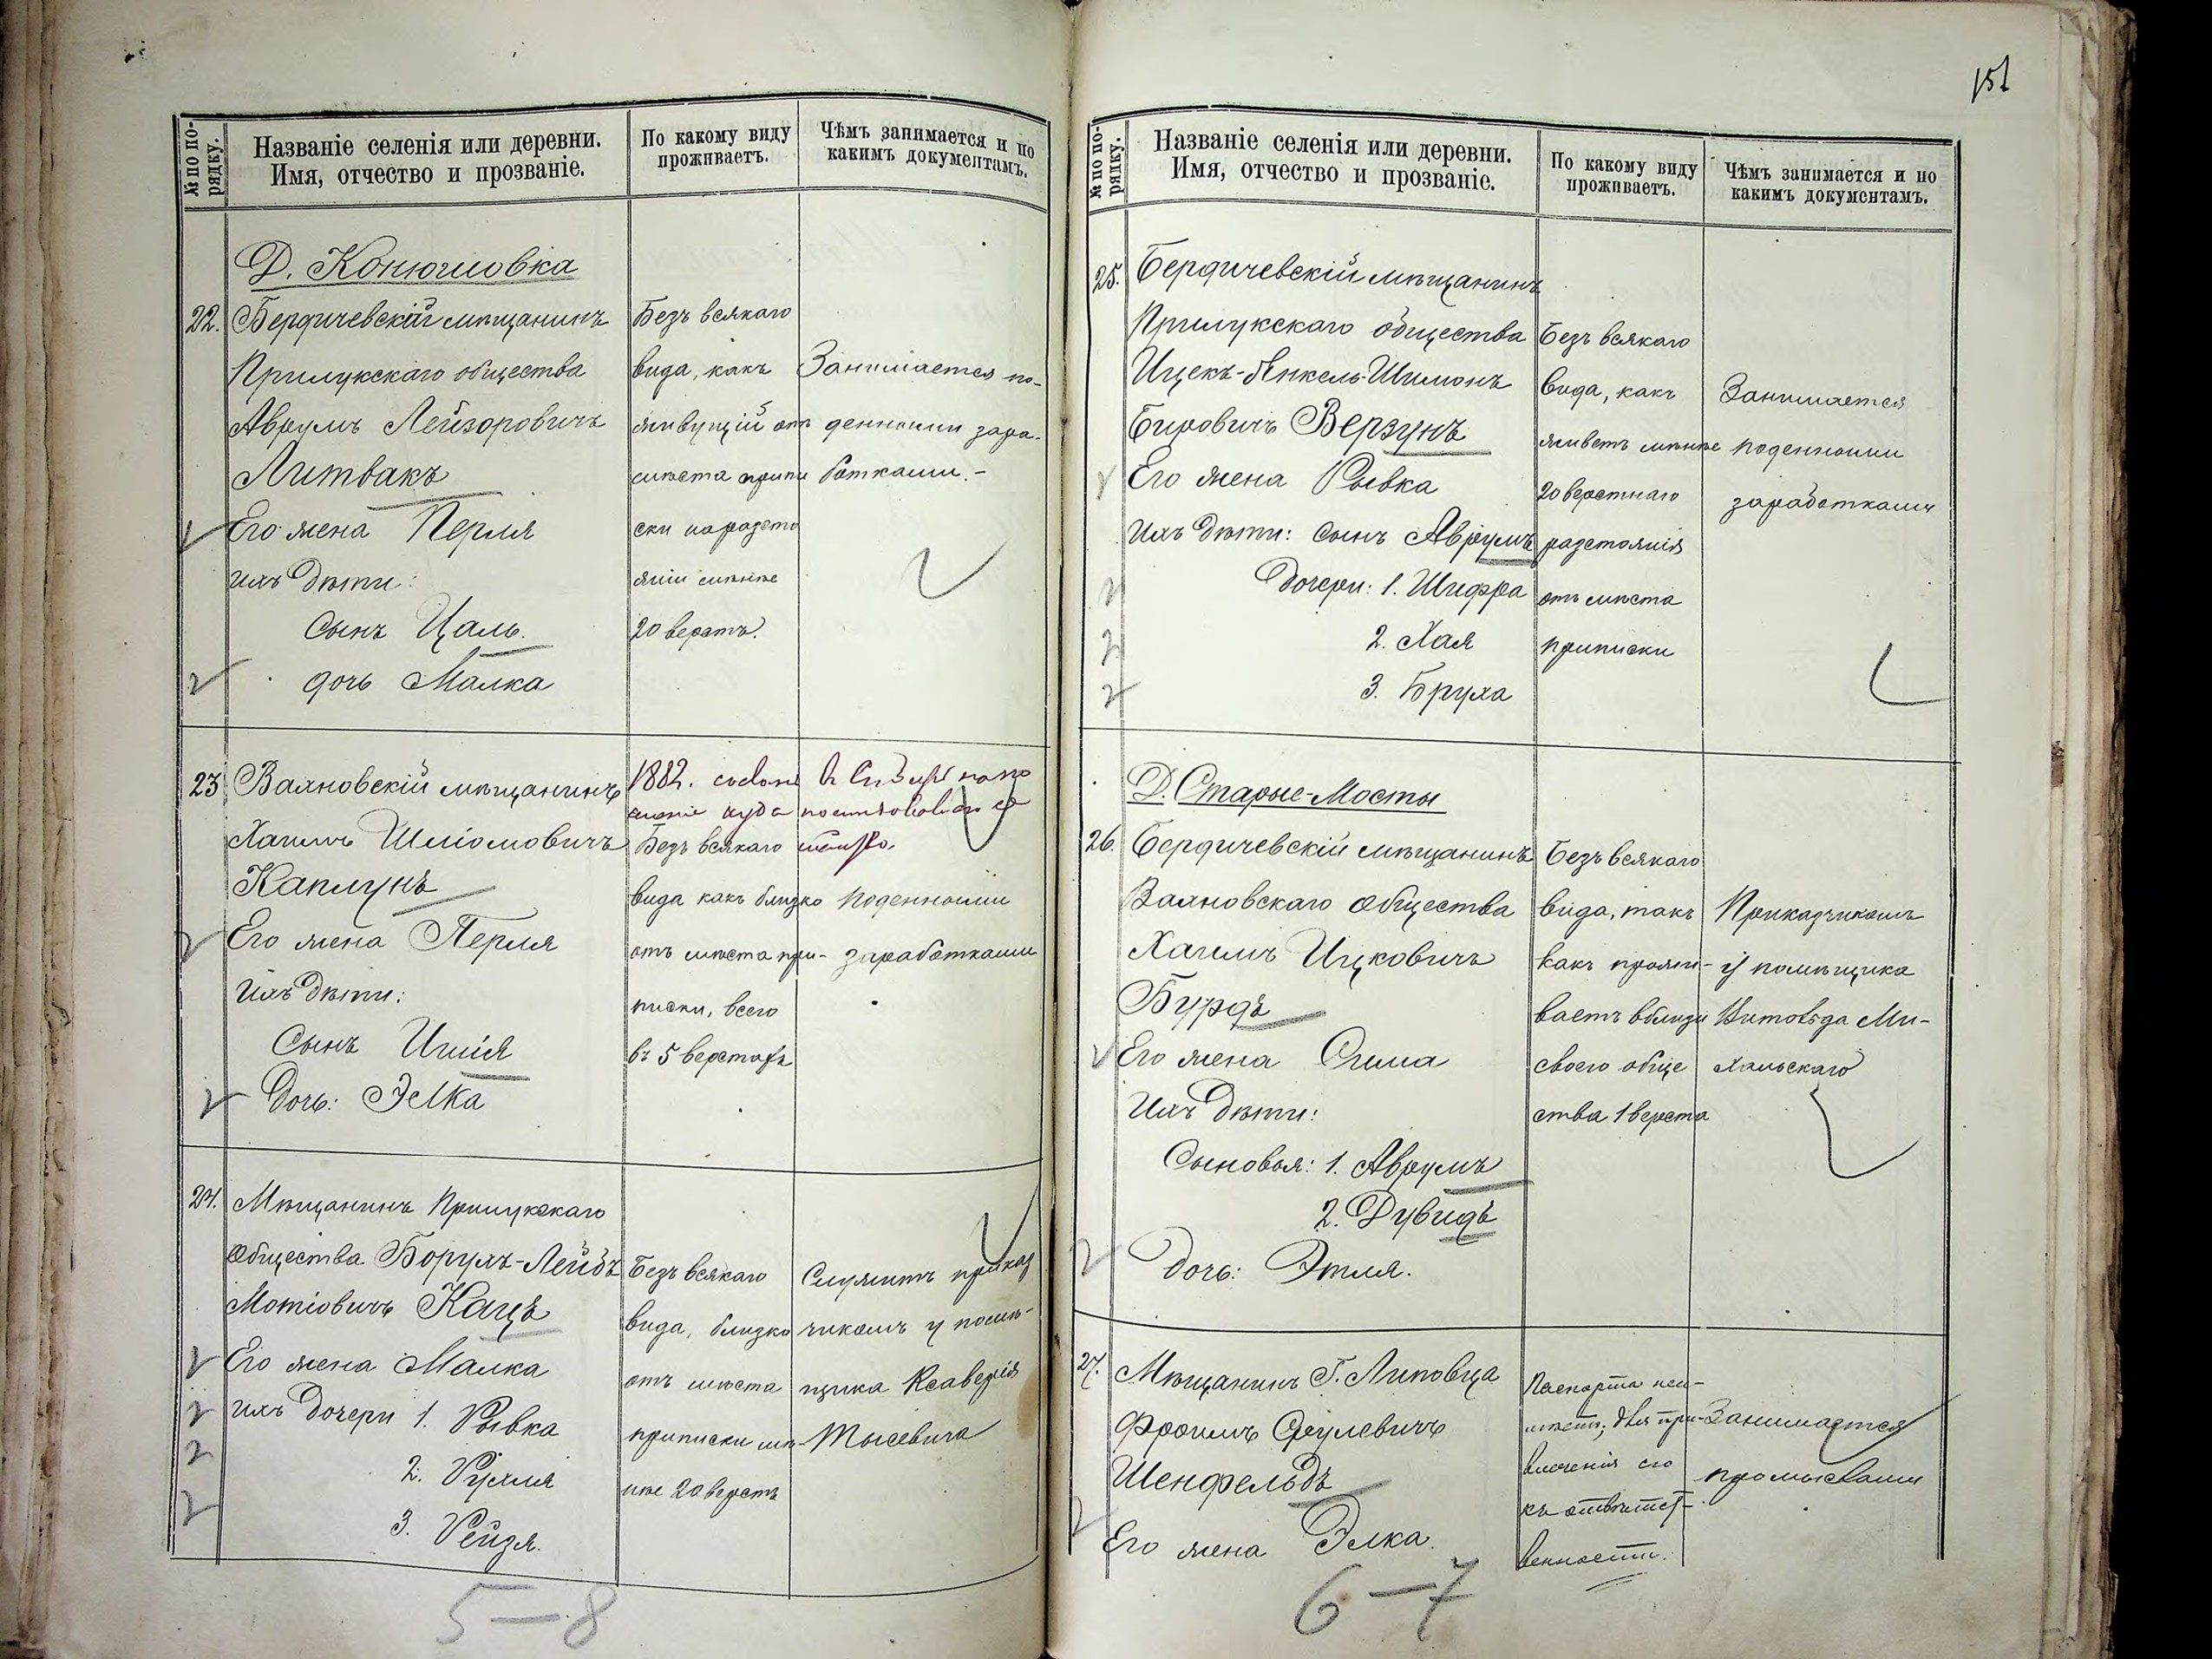 № по по-
рядку.
Названіе селенія или деревни.
Имя, отчество и прозваніе.
По какому виду
проживаетъ.
Чѣмъ занимается и по
какимъ документамъ.
Д. Конюшовка
22. Бердичевскій мѣщанинъ
Прилукскаго общества
Аврумъ Лейзоровичъ
Литвакъ
Его жена Перля
ихъ дѣти:
Сынъ Цаль.
дочь Малка
Безъ всякаго
вида, какъ
живущій отъ
мѣста припи
ски на разсто
яніи менѣе
20 верстъ.
Занимается по-
денными зара-
ботками.-
23 Вахновскій мѣщанинъ
Хаимъ Шліомовичъ
Каплунъ
Его жена Перля
Ихъ дѣти:
Сынъ Ицiя
Дочь: Элка
1882.
куда
Безъ всякаго
вида какъ близко
отъ мѣста при-
писки, всего
въ 5 верстахъ
Поденными
заработками
24. Мѣщанинъ Прилукскаго
Общества Борухъ-Лейбъ
Мотіовичъ Кацъ
Его жена Малка
ихъ дочери 1. Рывка
2. Рухля
3. Рейзя.
Безъ всякаго
вида, близко
отъ мѣста
приписки ме-
нѣе 20 верстъ
Служитъ приказ
чикомъ у помѣ-
щика Ксаверія
Тысевича
5-8
151
№ по по-
рядку.
Названіе селенія или деревни.
Имя, отчество и прозваніе.
По какому виду
проживаетъ.
Чѣмъ занимается и по
какимъ документамъ.
25. Бердичевскій мѣщанинъ
Прилукскаго общества
Ицекъ-Янкель-Шимонъ
Берзунъ
Его жена Рывка
Ихъ дѣти: сынъ Аврумъ
Дочери: 1. Шифра
2. Хая
3. Бруха
Безъ всякаго
вида, какъ
живетъ менѣе
20 верстнаго
разстоянія
отъ мѣста
приписки
Занимается
поденными
заработками
Д. Старые-Мосты
26. Бердичевскій мѣщанинъ
Вахновскаго общества
Хаимъ Ицковичъ
Бурдъ
Его жена Сима
Ихъ дѣти:
Сыновья: 1. Аврумъ
2. Дувидъ
Дочь: Этля.
Безъ всякаго
вида, такъ
какъ прожи-
ваетъ вблизи
своего обще
ства 1 верста
Приказчикомъ
у помѣщика
Витольда Ми-
хальскаго
27. Мѣщанинъ Г. Липовца
Фроимъ Срулевичъ
Шенфельдъ
Его жена Элка.
Паспорта неи-
мѣетъ; для при-
влеченія его
къ отвѣтст-
венности.
Занимается
промыслами
6-7